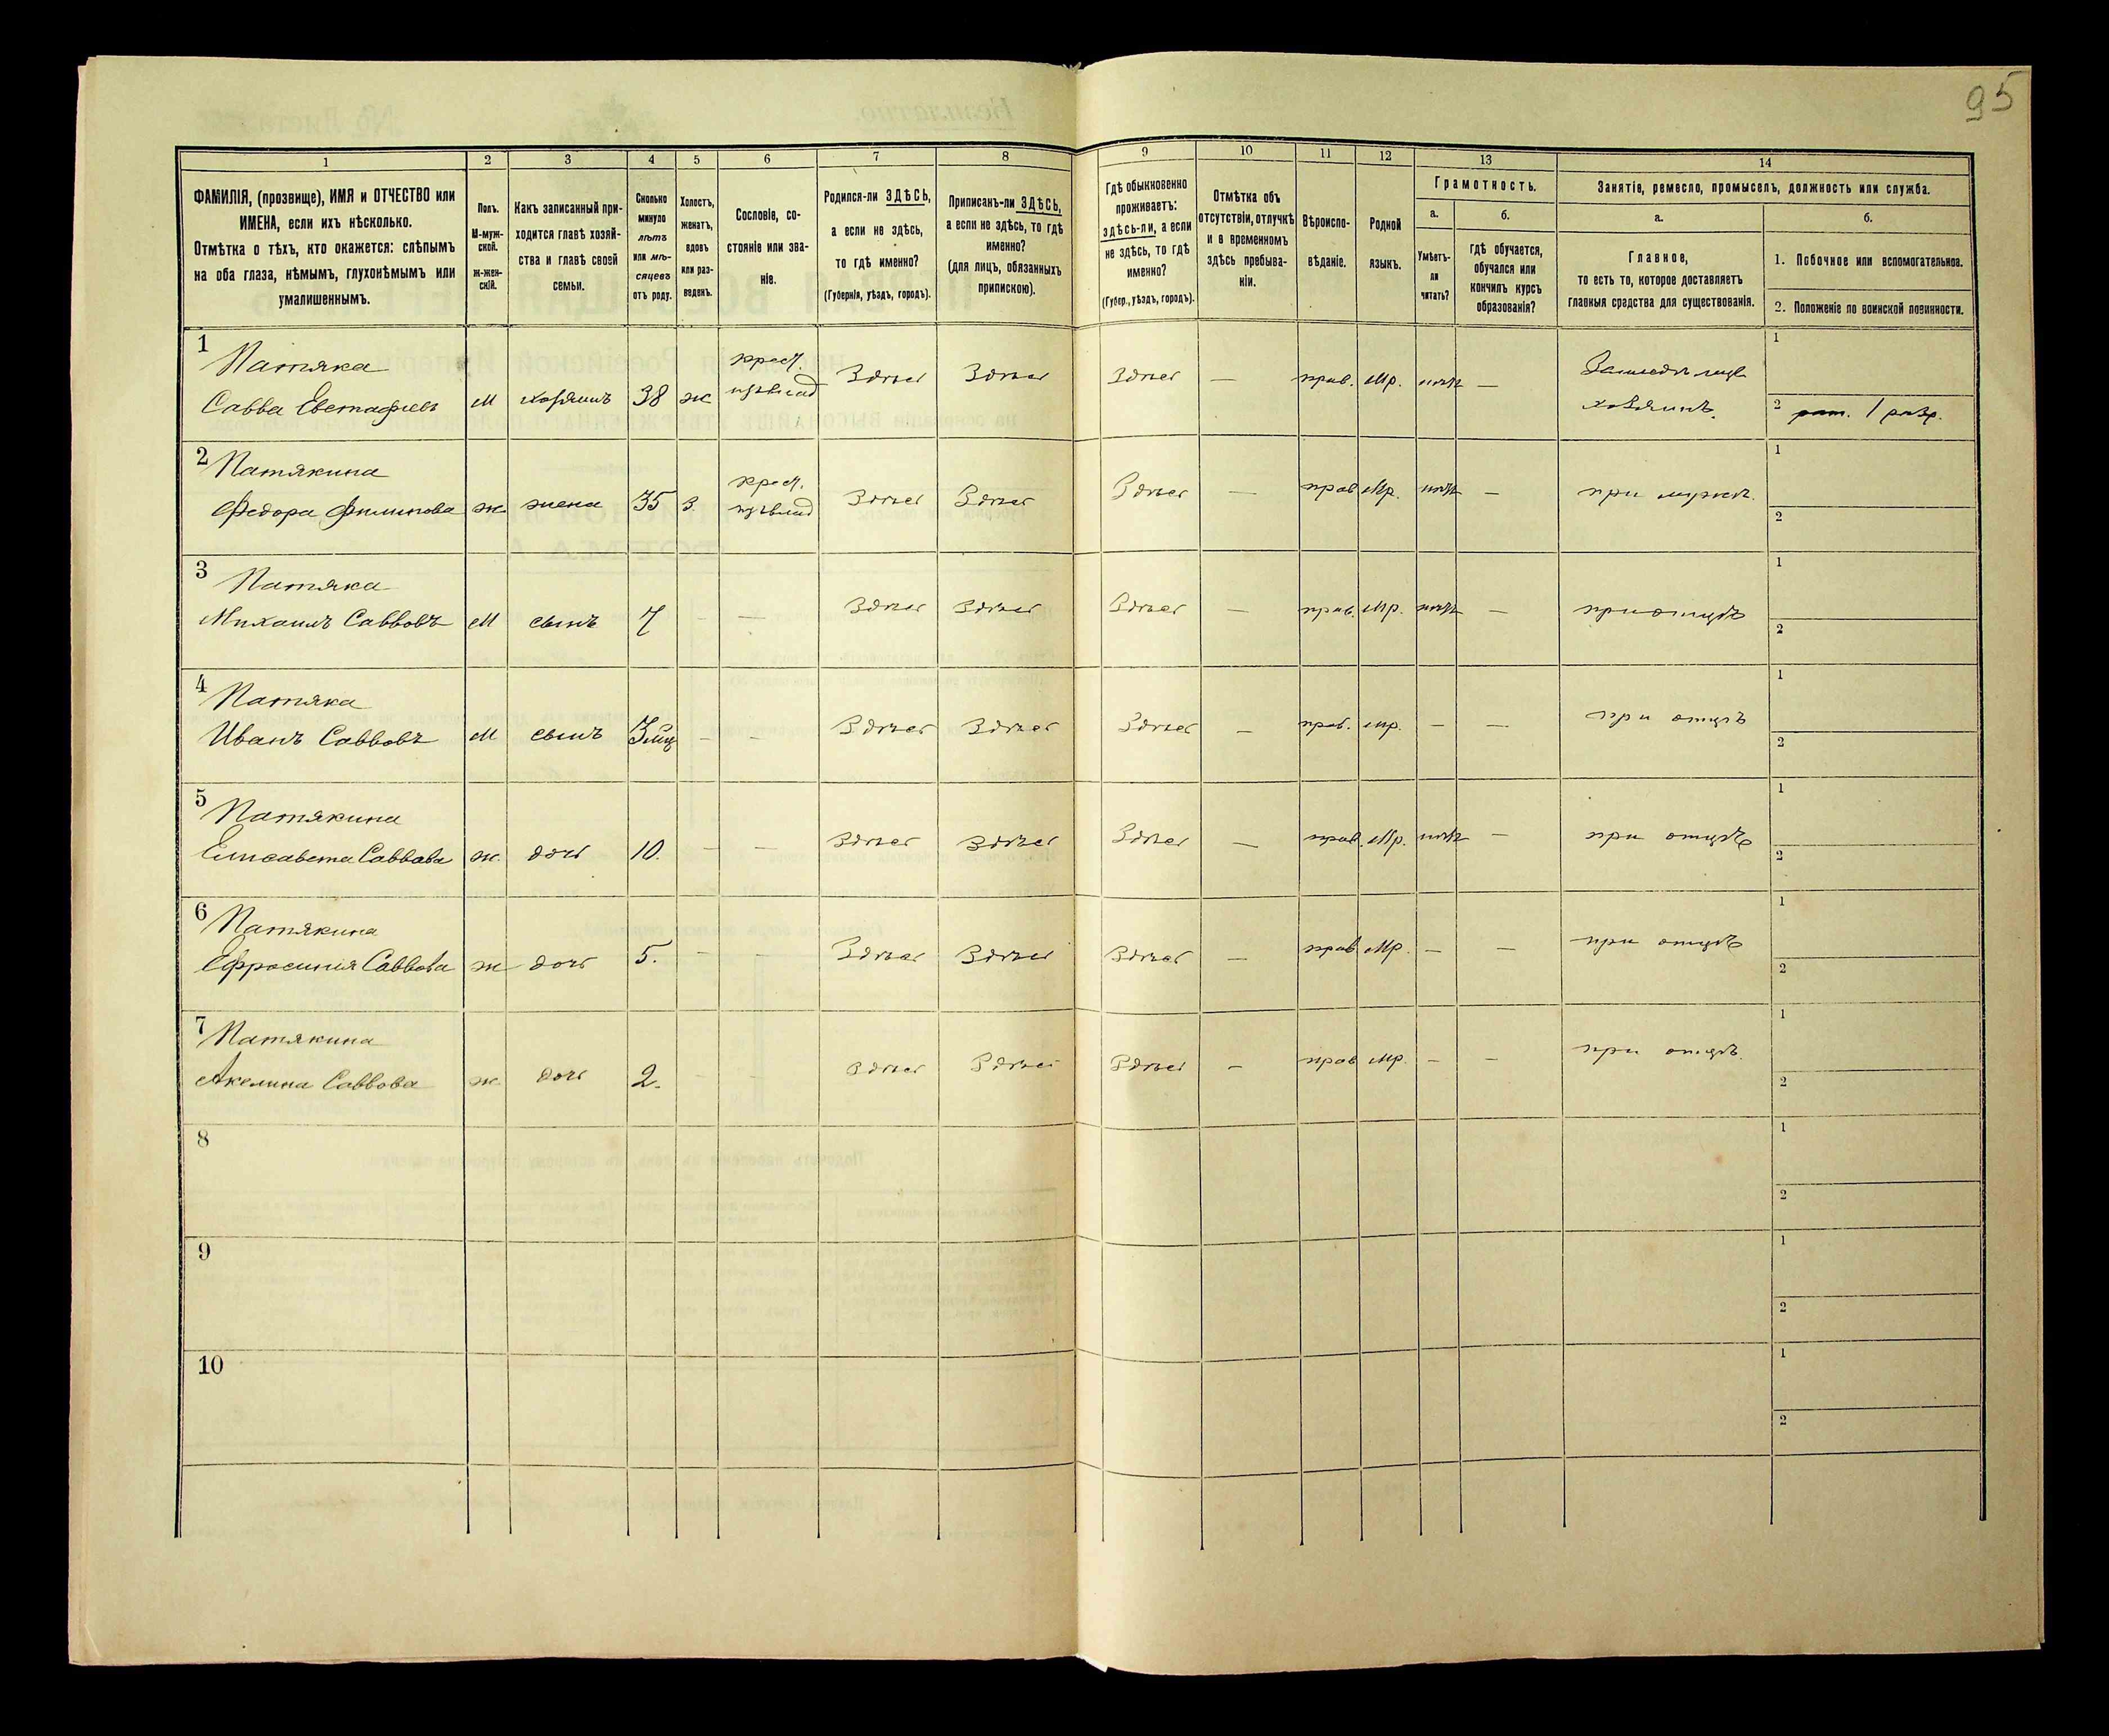 95
1
2
3
4
5
6
7
8
9
10
11
12
13
14
ФАМИЛІЯ, (прозвище), ИМЯ и ОТЧЕСТВО или
ИМЕНА, если ихъ нѣсколько.
Отмѣтка о тѣхъ, кто окажется: слѣпымъ
на оба глаза, нѣмымъ, глухонѣмымъ или
умалишеннымъ.
Полъ.
М-муж-
ской.
ж-жен-
скій.
Какъ записанный при-
ходится главѣ хозяй-
ства и главѣ своей
семьи.
Сколько
минуло
лѣтъ
или мѣ-
сяцевъ
отъ роду.
Холостъ,
женатъ,
вдовъ
или раз-
веденъ.
Сословіе, со-
стояніе или зва-
ніе.
Родился-ли ЗДѢСЬ,
а если не здѣсь,
то гдѣ именно?
(Губернія, уѣздъ, городъ).
Приписанъ-ли ЗДѢСЬ,
а если не здѣсь, то гдѣ
именно?
(для лицъ, обязанныхъ
припискою).
Гдѣ обыкновенно
проживаетъ:
здѣсь-ли, а если
не здѣсь, то гдѣ
именно?
(Губер., уѣздъ, городъ).
Отмѣтка объ
отсутствіи, отлучкѣ
и о временномъ
здѣсь пребыва-
ніи.
Вѣроиспо-
вѣданіе.
Родной
языкъ.
Грамотность.
а.
б.
Умѣетъ-
ли
читать?
Гдѣ обучается,
обучался или
кончилъ курсъ
образованія?
Занятіе, ремесло, промыселъ, должность или служба.
а.
б.
Главное,
то есть то, которое доставляетъ
главныя средства для существованія.
1. Побочное или вспомогательное.
2. Положеніе по воинской повинности.
1 Патяка
Савва Евстафіевъ М хозяинъ 38 ж крест. Здѣсь Здѣсь Здѣсь — прав. Мр. нѣтъ —
хозяинъ.
1
2 рат. 1 разр.
2 Патякина
Федора Филипова ж. жена 35 З. крест. Здѣсь Здѣсь Здѣсь — прав Мр. нѣтъ — при мужѣ.
1
2
3 Патяка
Михаилъ Савовъ М сынъ 7 - — Здѣсь Здѣсь Здѣсь — прав. Мр. нѣтъ — при отцѣ
1
2
4 Патяка
Иванъ Саввовъ М сынъ 3 мц — - Здѣсь Здѣсь Здѣсь — прав. Мр. — — при отцѣ
1
2
5 Патякина
Елисавета Саввова ж. дочь 10. — — Здѣсь Здѣсь Здѣсь — прав. Мр. нѣтъ — при отцѣ
1
2
6 Патякина
Ефросинія Саввова ж дочь 5. - — Здѣсь Здѣсь Здѣсь — прав Мр. — — при отцѣ
1
2
7 Патякина
Акелина Саввова ж. дочь 2. - - Здѣсь Здѣсь Здѣсь — прав Мр. — — при отцѣ.
1
2
8
1
2
9
1
2
10
1
2